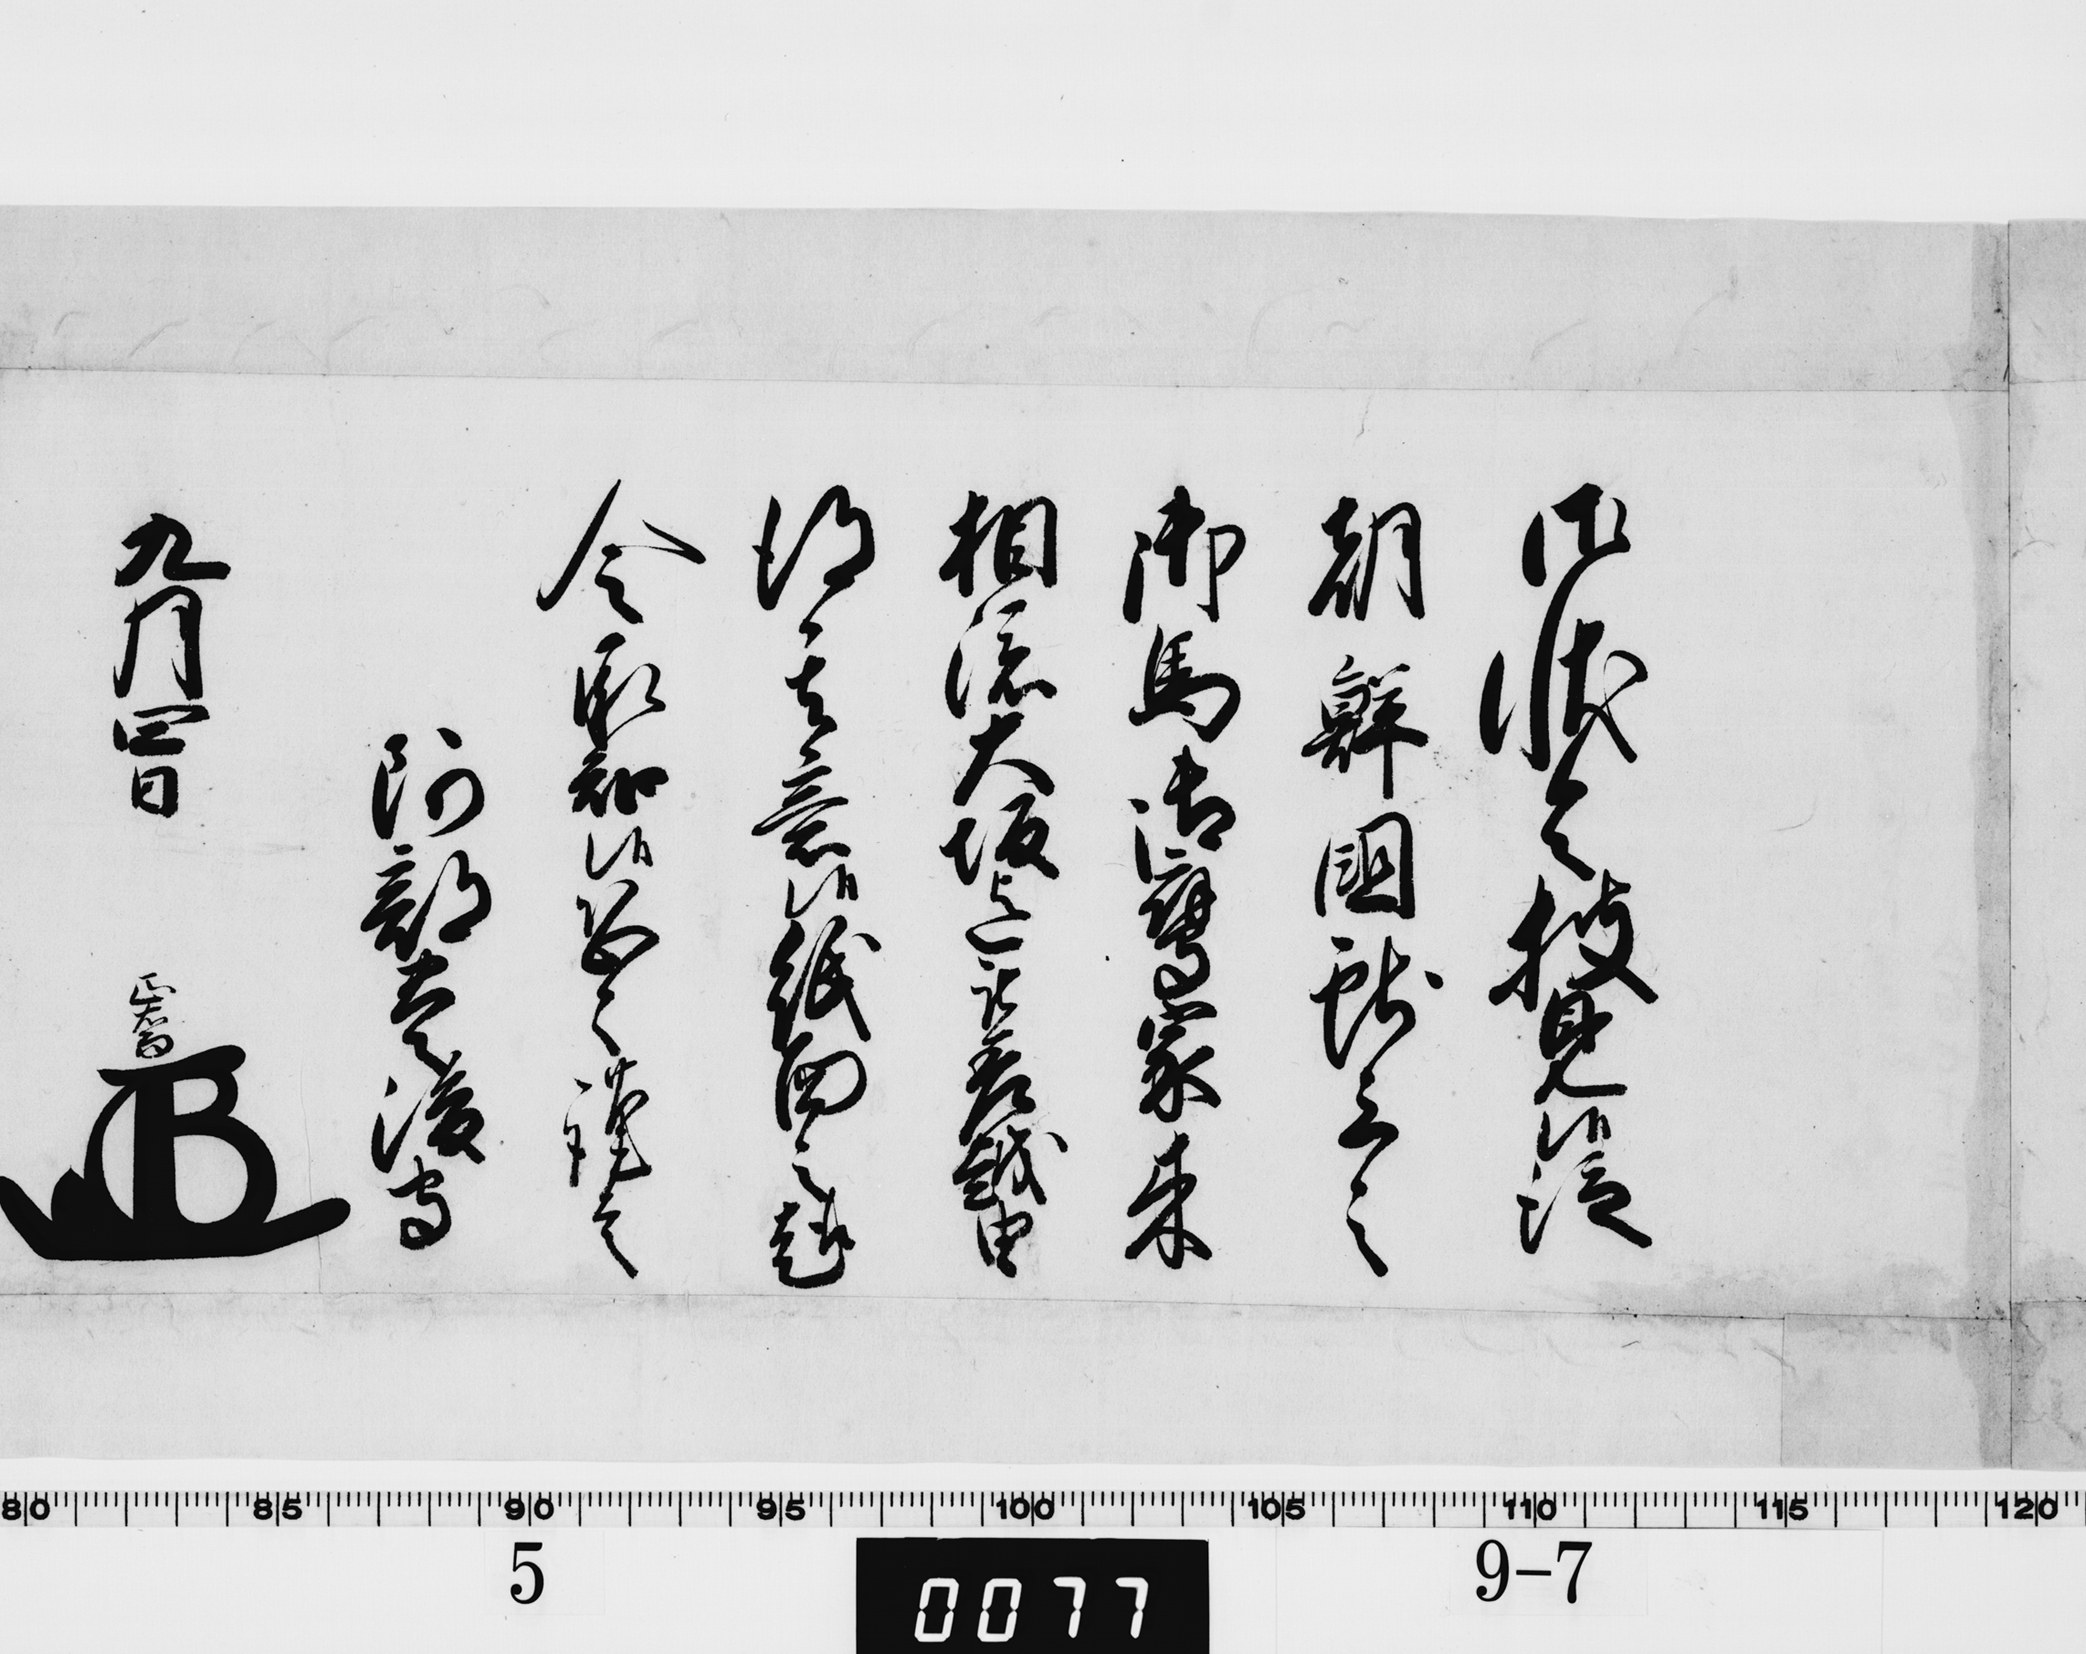 御状令披見候然
朝鮮国献上之
御馬御鷹家来
相添大坂迄被差越由
得其意候紙面之趣
令承知候恐々謹言
阿部豊後守
九月四日
正喬
80 85 90 95 100 105 110 115 120
5
0077
9-7